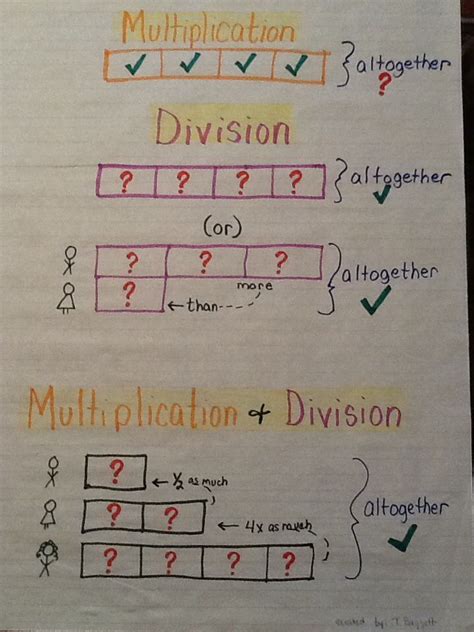 Multiplication
✓ ✓ ✓ ✓ } altogether
?
Division
? ? ? ? } altogether
✓
(or)
? ? ?
more
? ← than
altogether
✓
Multiplication & Division
? ← 1/2 as much
? ? ← 4x as much
? ? ? ?
altogether
✓
created by: T. Baggett